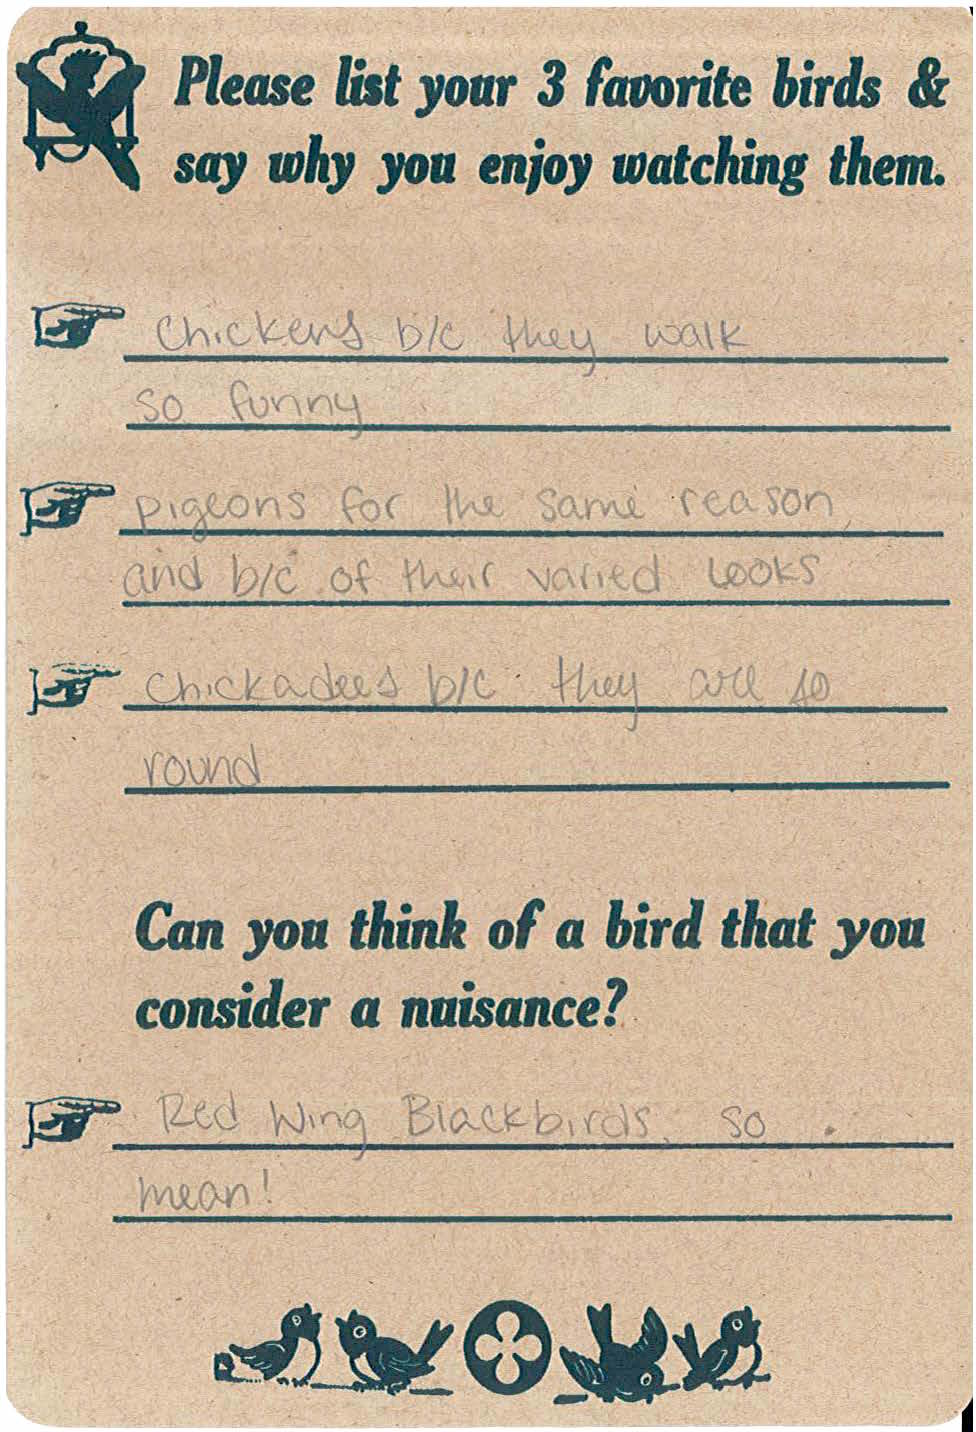 Please list your 3 favorite birds &
say why you enjoy watching them.
Chickens b/c they walk
so funny
pigeons for the same reason
and b/c of their varied looks
Chickadees b/c they are so
round
Can you think of a bird that you
consider a nuisance?
Red Wing Blackbirds, so
mean!